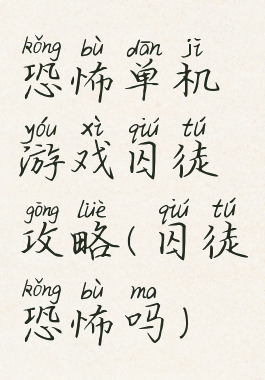 kǒng bù dān jī
恐怖单机
yóu xì qiú tú
游戏囚徒
gōng lüè qiú tú
攻略(囚徒
kǒng bù ma
恐怖吗)